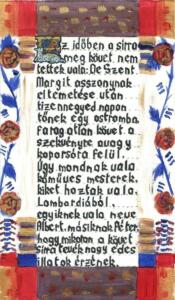 Az időben a sírra
meg követ nem
tettek vala: De Szent
Margit asszonynak
eltemetése után
tizennegyed napon
tőnek egy ostromba
faragatlan követ a
szekrényre avagy
koporsóra felül.
Úgy mondnak vala,
kőműves mesterek,
kiket hoztak vala
Lombardiából,
egyiknek vala neve
Albert, másiknak Péter,
hogy mikoron a követ
sírra tevék nagy édes
illatok érzének.